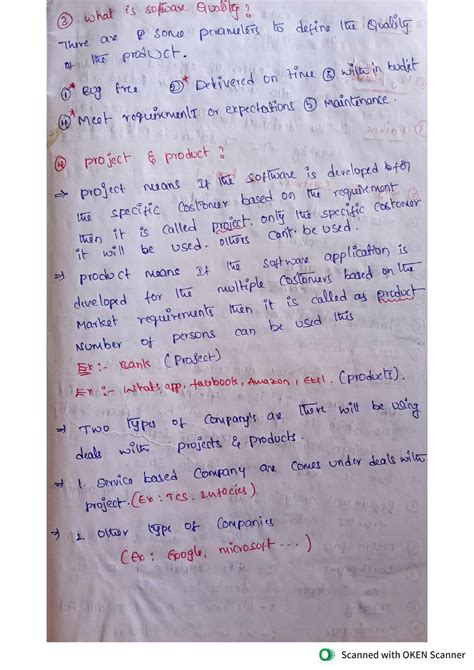 ③ What is software Quality?
There are some perameters to define the Quality
of the product.
① Bug free ② Delivered on time ③ with in budjet
④ Meet requirements or expectations ⑤ Maintinance.
④ project & product?
⇒ project means If the software is developed
the specific Costomer based on the requirement
then it is called project. only the specific Costomer
it will be used. others can't be used.
⇒ product means If the software application is
diveloped for the multiple Costomers based on the
Market requirements then it is called as product
Number of persons can be used this
Ex:- Bank (Project)
Ex:- Whats app, facebook, Amazon, Excel. (products).
⇒ Two types of Company's are there will be using
deals with projects & products.
⇒ 1. Service based Company are comes under deals with
project. (Ex: TCS.
⇒ 2. Other type of Companies
(Ex: Google, microsoft ....)
Scanned with OKEN Scanner